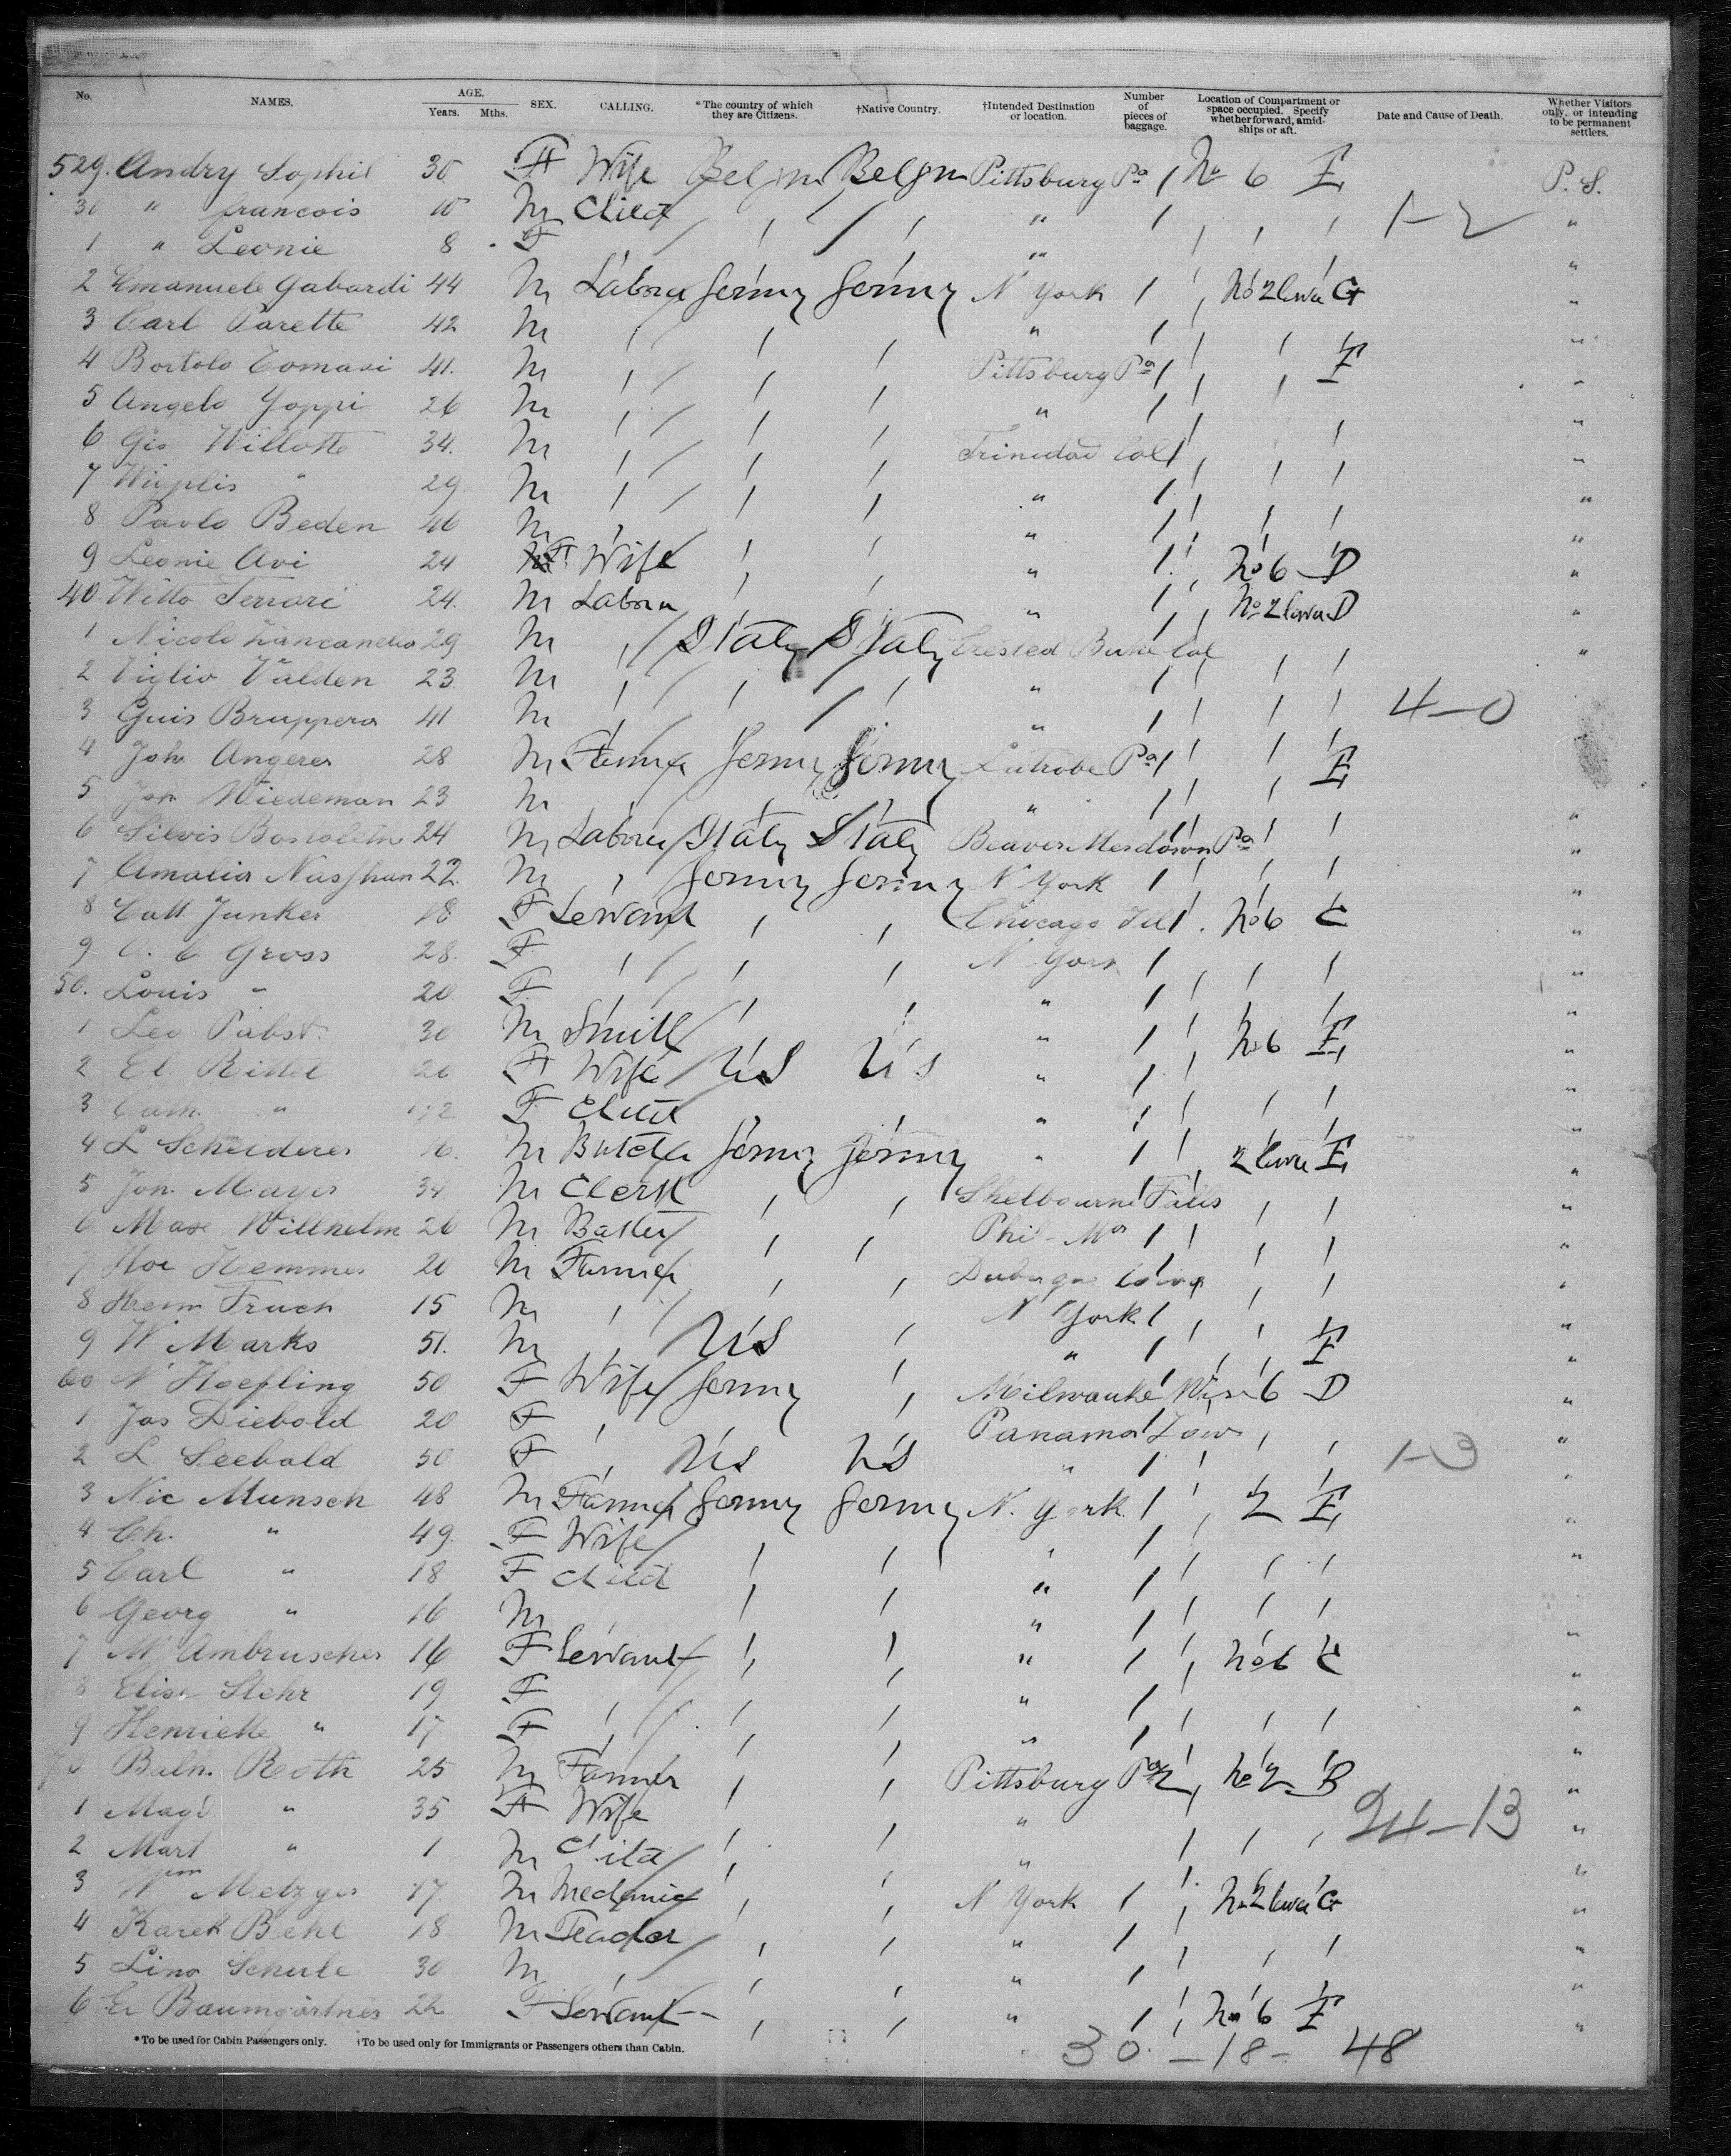 No. NAMES. AGE. Years. Mths. SEX. CALLING. *The country of which they are Citizens. †Native Country. †Intended Destination or location. Number of pieces of baggage. Location of Compartment or space occupied. Specify whether forward, amidships or aft. Date and Cause of Death. Whether Visitors only, or intending to be permanent settlers.
529. Andry Sophie 30 F Wife Belgm Belgm Pittsburg Pa 1 No 6 E P. S.
30 " francois 10 M Child " 1 1-2 "
1 " Leonie 8 F " "
2 Emanuele Gabardi 44 M Labour Germy Germy N York 1 No 2 G "
3 Carl Parette 42 M " 1 "
4 Bortolo Tomasi 41. M Pittsburg Pa 1 F "
5 Angelo Yoppi 26 M " 1 "
6 Gio Willotte 34. M Trinidad Col 1 "
7 " 29 M " 1 "
8 Paolo Beden 46 M " 1 "
9 Leonie Avi 24 F Wife " 1 No 6 D "
40 Witto Ferrari 24. M Labour " 1 No 2 D "
1 Nicolo Zancanella 29 M Italy Italy Crested Butte Col "
2 Viglio Valden 23. M " 1 "
3 Guis Bruppera 41 M " 1 4-0
4 Joh Angerer 28 M Farmer Germy Germy Latrobe Pa 1 E
5 Jos Wiedeman 23 M " 1 "
6 Silvis 24 M Labour Italy Italy Beaver Meadown Pa "
7 Amalia 22. M Germy Germy N York 1 "
8 Cath Junker 18 F Servant Chicago Ill 1 No 6 C "
9 C. C Gross 28. F N York 1 "
50. Louis " 20 F " 1 "
1 Leo Pabst 30 M Smith " 1 No 6 E "
2 El. Rittel 26 F Wife U S U S " 1 "
3 Cath. " F Child " 1 "
4 L Scheiderer 16. M Butcher Germy Germy " 1 2 E "
5 Jon. Mayer 34 M Clerk Shelbourne Falls "
6 Max Willhelm 26 M Baker Phil- 1 "
7 Hemmer 20 M Farmer Dubuque Iowa "
8 Herm Fruch 15 M N York 1 "
9 W Marks 51. M U S " 1 F "
60 N Hoefling 50 F Wife Germy Milwauke Wis 6 D "
1 Jos Diebold 20 F Panama Iowa "
2 L Seebald 50 F U S U S " 1 1-3
3 Nic Munsch 48 M Farmer Germy Germy N. York 1 2 E "
4 Ch. " 49. F Wife " 1 "
5 Carl " 18 F Child " 1
6 Georg " 16 M " 1 "
7 M Ambruscher 16 F Servant " 1 No 6 C "
8 Elise Stehr 19 F " 1 "
9 Henriette " 17. F " 1 "
70 Balh. Roth 25 M Farmer Pittsburg Pa 2 No 2 B "
1 Magd " 35 F Wife " 24-13 "
2 Mart " 1 M Child " 1 "
3 Wm Metzger 17. M Mechanic N York 1 No 2 G "
4 Karek Behl 18 M " 1 "
5 Lina Schule 30 M " 1 "
6 El Baumgärtner 22 F Servant " 1 No 6 E "
*To be used for Cabin Passengers only. †To be used only for Immigrants or Passengers others than Cabin.
30 - 18 - 48